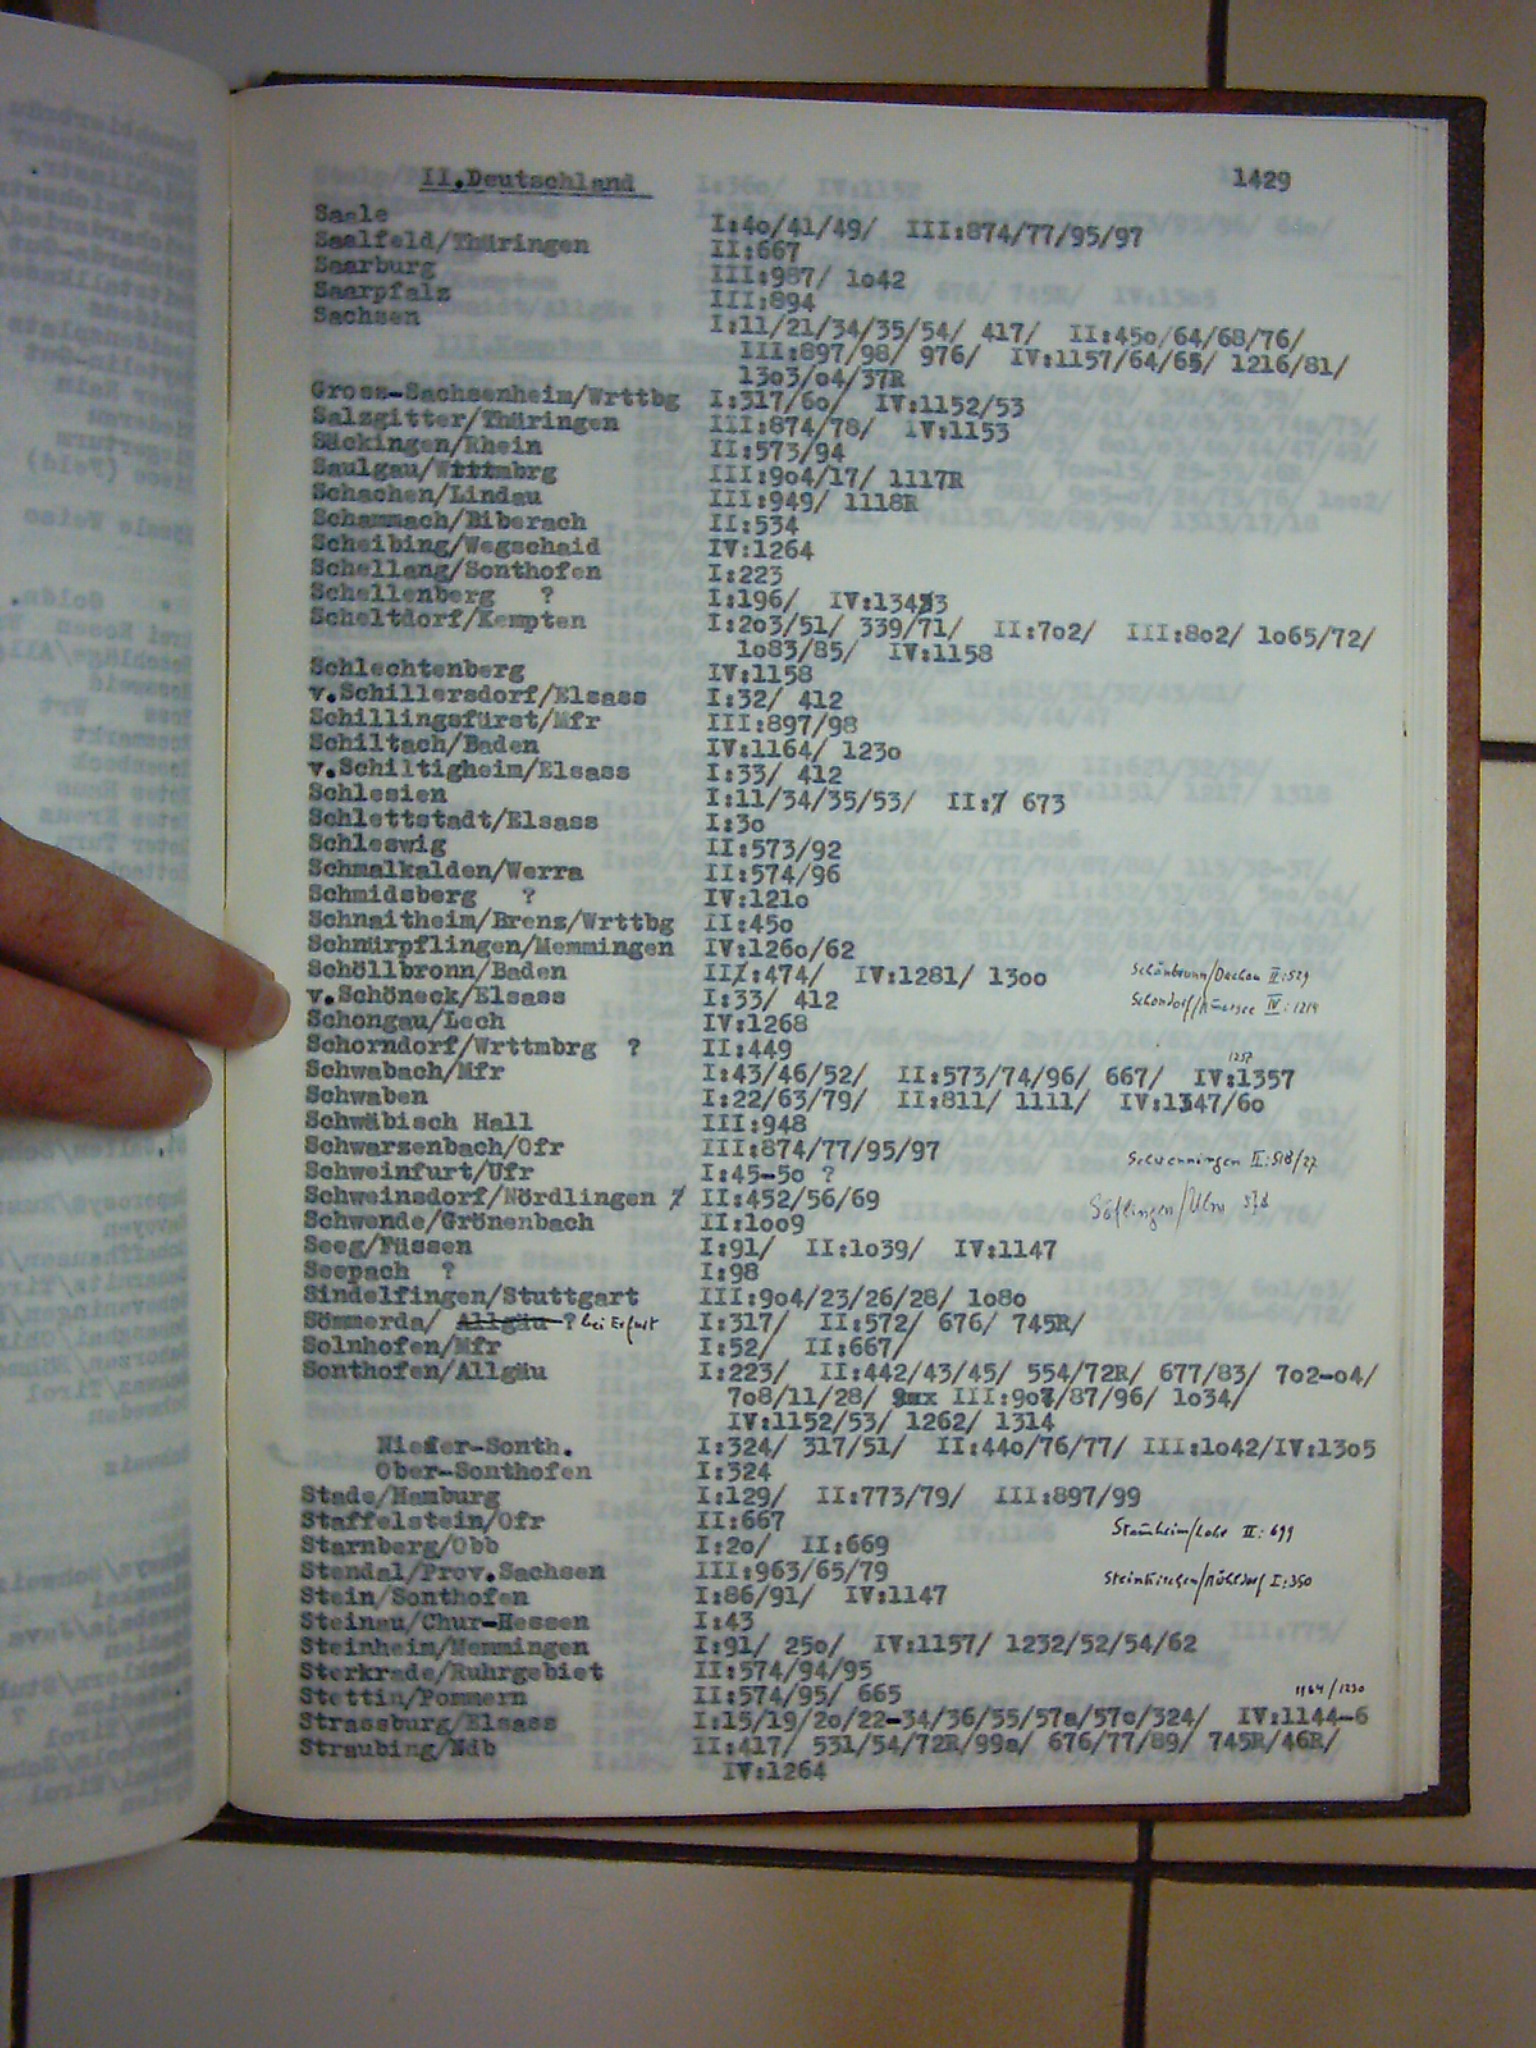 II.Deutschland 1429
Saale I:4o/41/49/ III:874/77/95/97
Saalfeld/Thüringen II:667
Saarburg III:987/ 1o42
Saarpfalz III:894
Sachsen I:11/21/34/35/54/ 417/ II:45o/64/68/76/
III:897/98/ 976/ IV:1157/64/65/ 1216/81/
13o3/o4/37R
Gross-Sachsenheim/Wrttbg I:317/6o/ IV:1152/53
Salzgitter/Thüringen III:874/78/ IV:1153
Säckingen/Rhein II:573/94
Saulgau/Wrttmbrg III:9o4/17/ 1117R
Schachen/Lindau III:949/ 1118R
Schammach/Biberach II:534
Scheibing/Wegschaid IV:1264
Schellang/Sonthofen I:223
Schellenberg ? I:196/ IV:1343
Scheltdorf/Kempten I:2o3/51/ 339/71/ II:7o2/ III:8o2/ 1o65/72/
1o83/85/ IV:1158
Schlechtenberg IV:1158
v.Schillersdorf/Elsass I:32/ 412
Schillingsfürst/Mfr III:897/98
Schiltach/Baden IV:1164/ 123o
v.Schiltigheim/Elsass I:33/ 412
Schlesien I:11/34/35/53/ II:/ 673
Schlettstadt/Elsass I:3o
Schleswig II:573/92
Schmalkalden/Werra II:574/96
Schmidsberg ? IV:121o
Schnaitheim/Brenz/Wrttbg II:45o
Schnürpflingen/Memmingen IV:126o/62
Schöllbronn/Baden II:474/ IV:1281/ 13oo Schönbrunn/Dachau II:529
v.Schöneck/Elsass I:33/ 412 Schondorf/Ammersee IV:1214
Schongau/Lech IV:1268
Schorndorf/Wrttmbrg ? II:449
1257
Schwabach/Mfr I:43/46/52/ II:573/74/96/ 667/ IV:1357
Schwaben I:22/63/79/ II:811/ 1111/ IV:1347/6o
Schwäbisch Hall III:948
Schwarzenbach/Ofr III:874/77/95/97
Schweinfurt/Ufr I:45-5o ? Schwenningen II:518/27
Schweinsdorf/Nördlingen II:452/56/69 Söflingen/Ulm
Schwende/Grönenbach II:1oo9
Seeg/Füssen I:91/ II:1o39/ IV:1147
Seepach ? I:98
Sindelfingen/Stuttgart III:9o4/23/26/28/ 1o8o
Sömmerda/ Allgäu ? bei Erfurt I:317/ II:572/ 676/ 745R/
Solnhofen/Mfr I:52/ II:667/
Sonthofen/Allgäu I:223/ II:442/43/45/ 554/72R/ 677/83/ 7o2-o4/
7o8/11/28/ III:9o7/87/96/ 1o34/
IV:1152/53/ 1262/ 1314
Nieder-Sonth. I:324/ 317/51/ II:44o/76/77/ III:1o42/IV:13o5
Ober-Sonthofen I:324
Stade/Hamburg I:129/ II:773/79/ III:897/99
Staffelstein/Ofr II:667 II:699
Starnberg/Obb I:2o/ II:669
Stendal/Prov.Sachsen III:963/65/79 Steinkirchen/Mühldorf I:350
Stein/Sonthofen I:86/91/ IV:1147
Steinau/Chur-Hessen I:43
Steinheim/Memmingen I:91/ 25o/ IV:1157/ 1232/52/54/62
Sterkrade/Ruhrgebiet II:574/94/95
Stettin/Pommern II:574/95/ 665 1164/1230
Strassburg/Elsass I:15/19/2o/22-34/36/55/57a/57c/324/ IV:1144-6
Straubing/Ndb II:417/ 531/54/72R/99a/ 676/77/89/ 745R/46R/
IV:1264